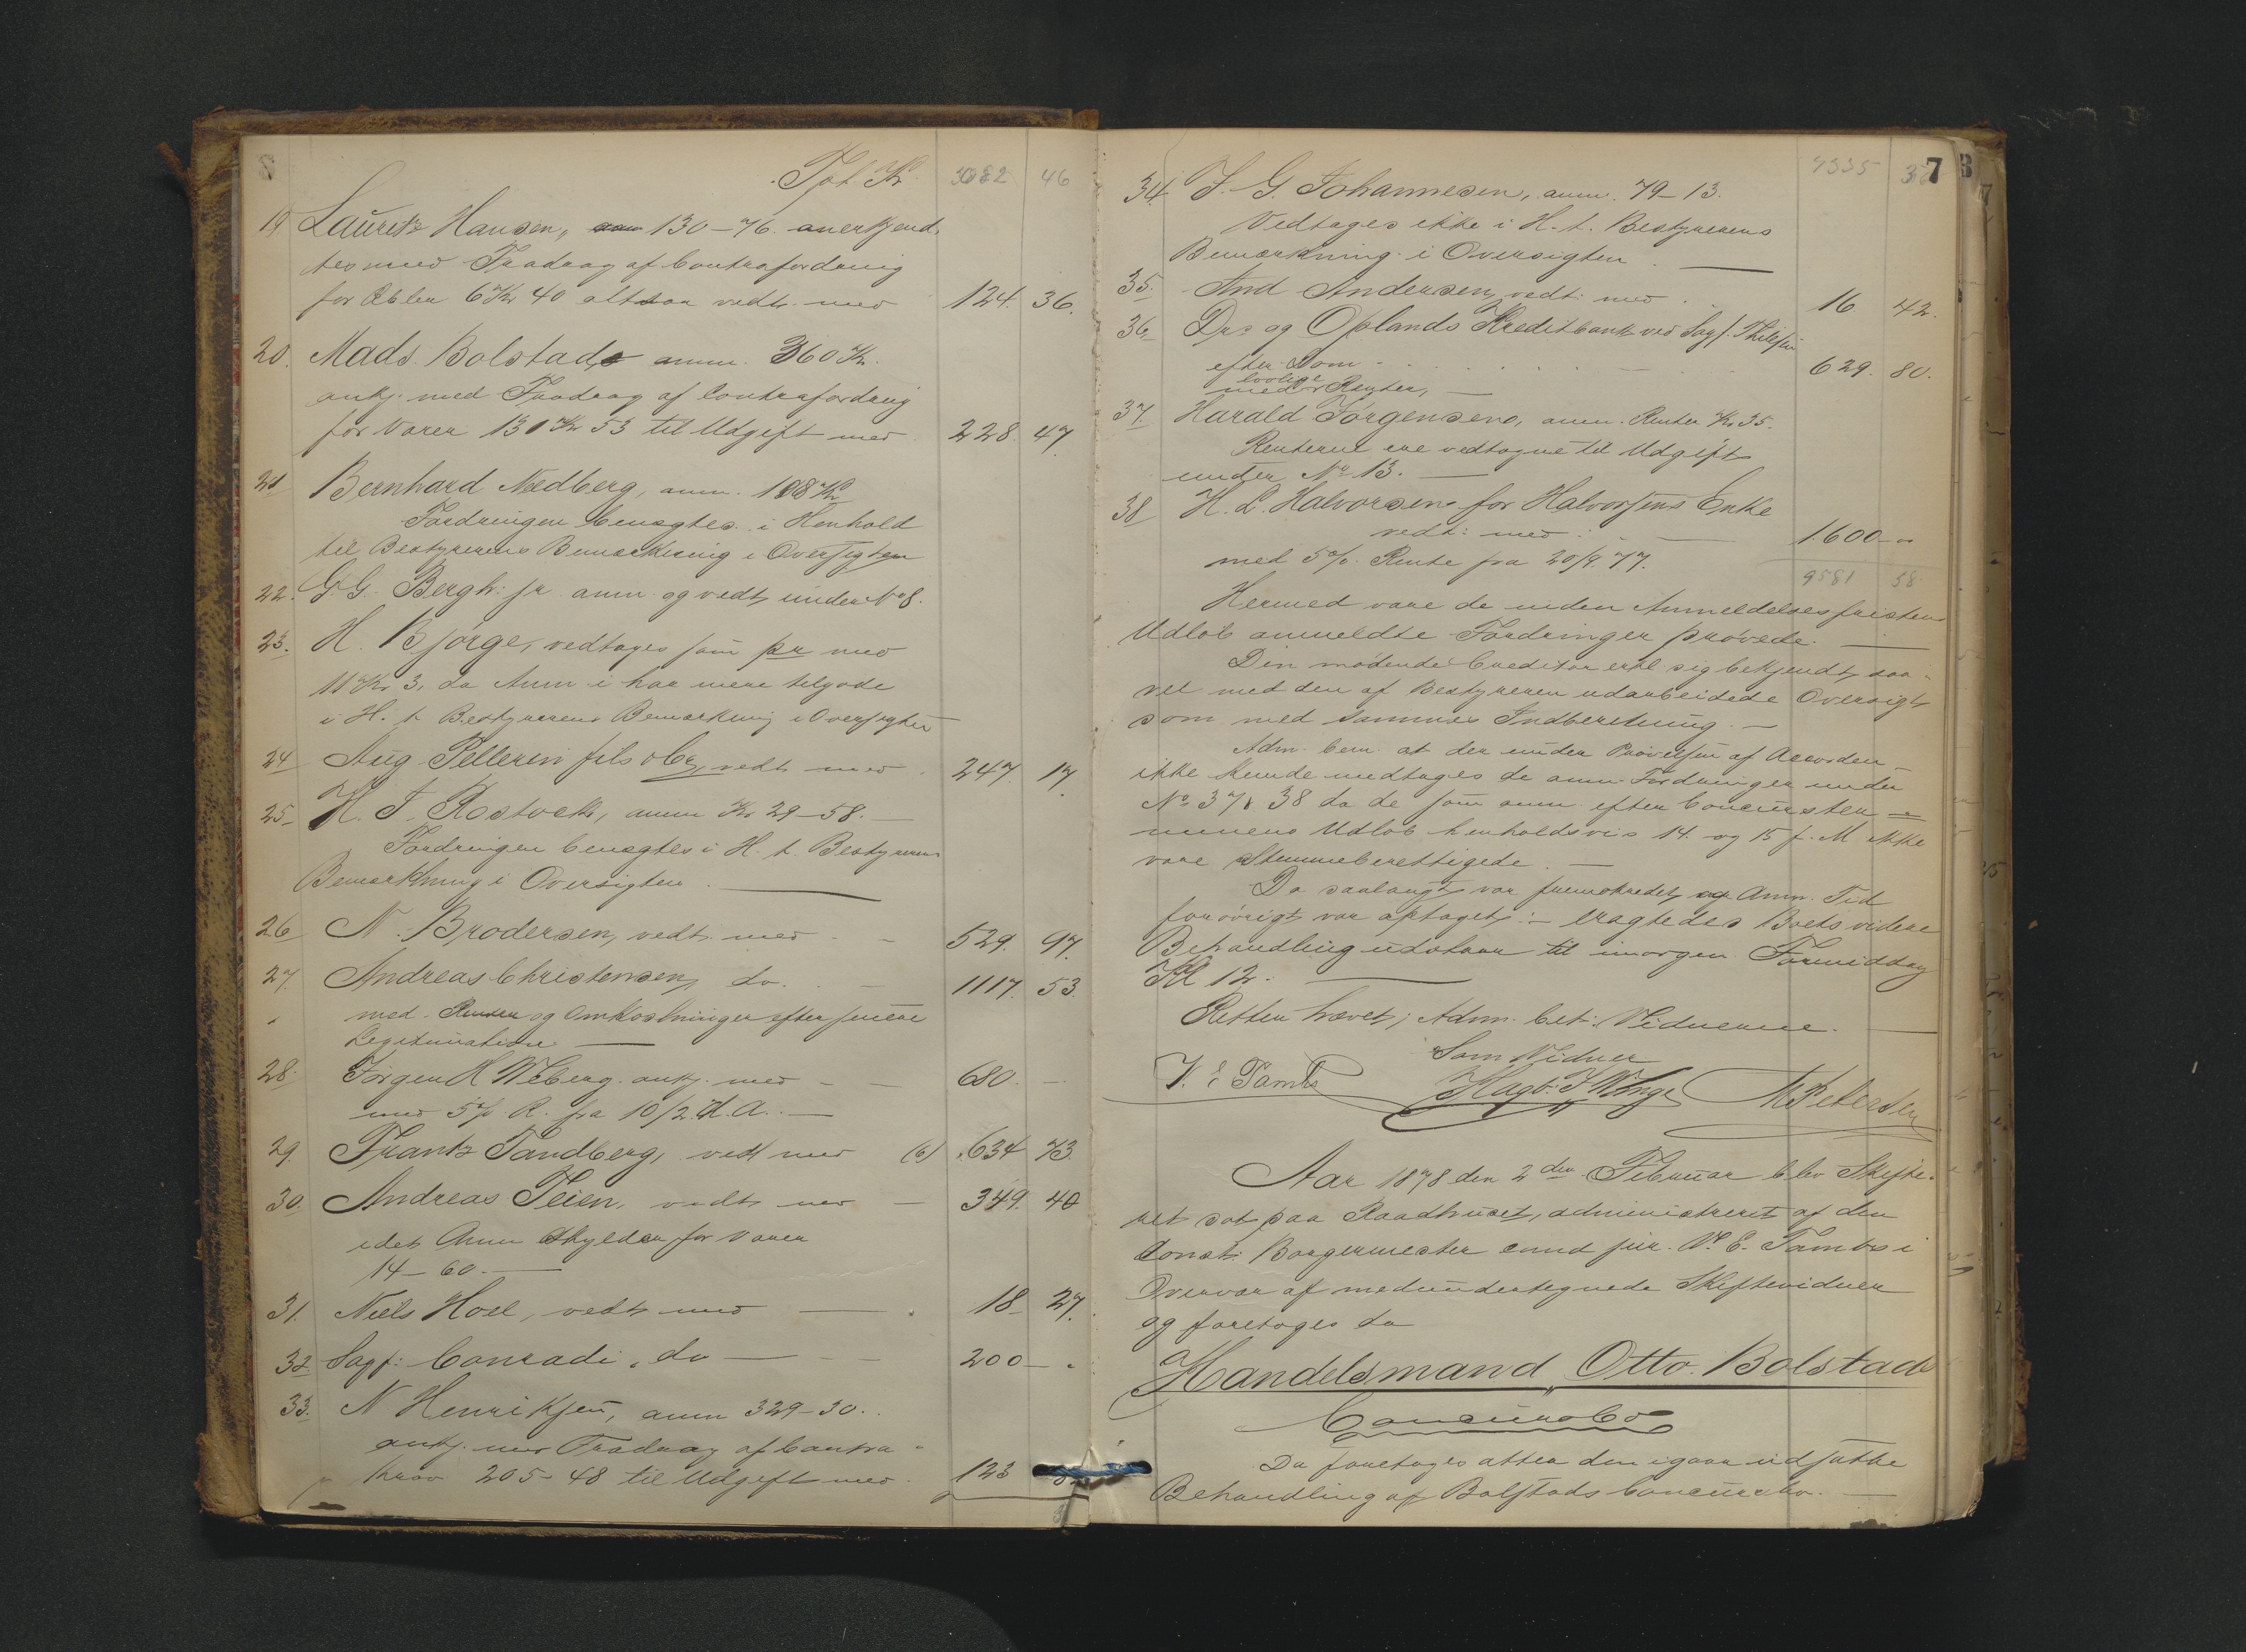 Tpt Kr. 3082 46
19. Lauritz Hansen, 130-76. anerkjend-
tes med Fradrag af Contrafordring
for Æbler 6 Kr 40 altsaa vedt. med 124. 36.
20. Mads Bolstad, anm. 360 Kr.
ankj. med Fradrag af Contrafordring
for Varer 131 Kr 53 til Udgift med 228. 47.
21 Bernhard Nedberg, anm. 108 Kr
Fordringen benegtes i Henhold
til Bestyrerens Bemærkning i Oversigten
22. G. G. Bergh jr anm. og vedt. under No 8.
23. H. Bjørge, vedtages som pr med
11 Kr 3, da Anm i har mere tilgode
i H. t. Bestyrerens Bemærkning i Oversigten
24 Aug Pellerin fils & Co, vedt. med 247. 17.
25. H. J. Rostock, anm Kr 29-58.
Fordringen benegtes i H. t. Bestyrerens
Bemærkning i Oversigten.
26 N. Brodersen, vedt. med 529. 97.
27. Andreas Christensen, do. 1117. 53.
med Renter og Omkostninger efter senere
Legitimation
28. Jørgen H Wiberg ankj. med 680. —
med 5 % R. fra 10/2 d. A.
29. Frantz Tandberg, vedt med (6) 634 73.
30. Andreas Teien, vedt. med 349. 40
idet Anm skylder for Varer
14-60.
31. Niels Hoel, vedt. med 18 27.
32. Sagf: Conradi, do 200 — "
33. N Henriksen, anm 329-30.
ankj. med Fradrag af Contra-
krav 205-48 til Udgift med 123
7335 38 7
34. J. G. Johannesen, anm. 79-13.
Vedtages ikke i H. t. Bestyrerens
Bemærkning i Oversigten.
35. And Andersen, vedt: med 16 42.
36. Drs og Oplands Kreditbank ved Sagf.
efter Dom 629. 80.
lovlige
med Renter,
37. Harald Jørgensen, anm. Renter Kr 35.
Renterne ere vedtagne til Udgift
under No 13.
38 H. L. Halvorsen for Halvorsens Enke
vedt: med 1600 — "
med 5 % Rente fra 20/9. 77.
9581 58
Hermed vare de inden Anmeldelsesfristens
Udløb anmeldte Fordringer prøvede.
Den mødende Creditor erkl. sig bekjendt saa-
vel med den af Bestyreren udarbeidede Oversigt
som med sammes Indberetning.
Adm. bem. at der under Prøvelsen af Accorden
ikke kunde medtages de anm. Fordringer under
No 37 & 38 da de som anm. efter Concurster-
minens Udløb henholdsvis 14. og 15 f. M ikke
vare stemmeberettigede.
Da saalangt var fremskredet og Anm. Tid
forøvrigt var optaget: — eragtedes Boets videre
Behandling udstaar til imorgen Formiddag
Kl 12.
Retten hævet; Adm. bet: Vidnerne.
Som Vidner
V. E. Tambs Hagb. J Winge M Petersen
Aar 1878 den 2den Februar blev Skifte-
ret sat paa Raadhuset, administreret af den
const: Borgermester cand jur. V. E. Tambs i
Overvær af medundertegnede Skiftevidner
og foretoges da
Handelsmand Otto Bolstads
Concursbo
Da foretoges atter den igaar udsatte
Behandling af Bolstads Concursbo.